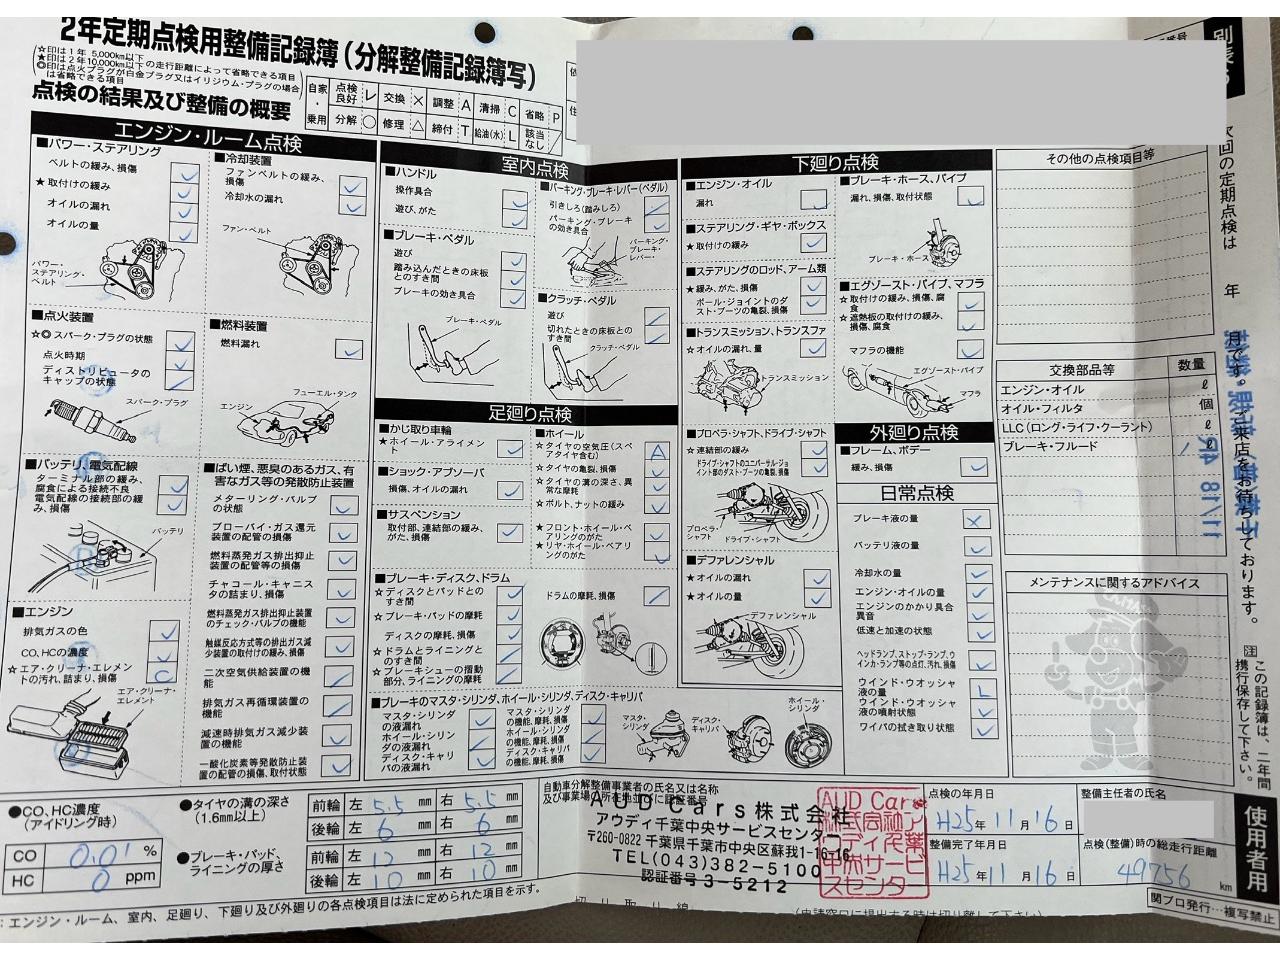 2年定期点検用整備記録簿(分解整備記録簿写)
☆印は1年 5,000km以下
★印は2年10,000km以下の走行距離によって省略できる項目
◎印は点火プラグが白金プラグ又はイリジウム・プラグの場合
は省略できる項目
点検の結果及び整備の概要
自家・乗用
点検良好 レ 交換 × 調整 A 清掃 C 省略 P
分解 ○ 修理 △ 締付 T 給油(水) L 該当なし ╱
エンジン・ルーム点検
■パワー・ステアリング
ベルトの緩み、損傷
★取付けの緩み
オイルの漏れ
オイルの量
パワー・ステアリング・ベルト
■冷却装置
ファンベルトの緩み、損傷
冷却水の漏れ
ファン・ベルト
■点火装置
☆◎スパーク・プラグの状態
点火時期
ディストリビュータのキャップの状態
スパーク・プラグ
■燃料装置
燃料漏れ
フューエル・タンク
エンジン
■バッテリ、電気配線
ターミナル部の緩み、腐食による接続不良
電気配線の接続部の緩み、損傷
バッテリ
■ばい煙、悪臭のあるガス、有害なガス等の発散防止装置
メターリング・バルブの状態
ブローバイ・ガス還元装置の配管の損傷
燃料蒸発ガス排出抑止装置の配管等の損傷
チャコール・キャニスタの詰まり、損傷
燃料蒸発ガス排出抑止装置のチェック・バルブの機能
触媒反応方式等の排出ガス減少装置の取付けの緩み、損傷
二次空気供給装置の機能
排気ガス再循環装置の機能
減速時排気ガス減少装置の機能
一酸化炭素等発散防止装置の配管の損傷、取付状態
■エンジン
排気ガスの色
CO、HCの濃度
☆エア・クリーナ・エレメントの汚れ、詰まり、損傷 C
エア・クリーナ・エレメント
室内点検
■ハンドル
操作具合
遊び、がた
■ブレーキ・ペダル
遊び
踏み込んだときの床板とのすき間
ブレーキの効き具合
ブレーキ・ペダル
■パーキング・ブレーキ・レバー(ペダル)
引きしろ(踏みしろ)
パーキング・ブレーキの効き具合
パーキング・ブレーキ・レバー・
■クラッチ・ペダル
遊び
切れたときの床板とのすき間
クラッチ・ペダル
足廻り点検
■かじ取り車輪
★ホイール・アライメント
■ショック・アブソーバ
損傷、オイルの漏れ
■サスペンション
取付部、連結部の緩み、がた、損傷
■ホイール
☆タイヤの空気圧(スペアタイヤ含む) A
☆タイヤの亀裂、損傷
☆タイヤの溝の深さ、異常な摩耗
☆ボルト、ナットの緩み
★フロント・ホイール・ベアリングのがた
★リヤ・ホイール・ベアリングのがた
■ブレーキ・ディスク、ドラム
☆ディスクとパッドとのすき間
☆ブレーキ・パッドの摩耗
ディスクの摩耗、損傷
☆ドラムとライニングとのすき間
☆ブレーキシューの摺動部分、ライニングの摩耗
ドラムの摩耗、損傷
■ブレーキのマスタ・シリンダ、ホイール・シリンダ、ディスク・キャリパ
マスタ・シリンダの液漏れ
ホイール・シリンダの液漏れ
ディスク・キャリパの液漏れ
マスタ・シリンダの機能、摩耗、損傷
ホイール・シリンダの機能、摩耗、損傷
ディスク・キャリパの機能、摩耗、損傷
マスタ・シリンダ
ディスク・キャリパ
ホイール・シリンダ
下廻り点検
■エンジン・オイル
漏れ
■ステアリング・ギヤ・ボックス
★取付けの緩み
■ステアリングのロッド、アーム類
★緩み、がた、損傷
ボール・ジョイントのダスト・ブーツの亀裂、損傷
■トランスミッション、トランスファ
☆オイルの漏れ、量
トランスミッション
■ブレーキ・ホース、パイプ
漏れ、損傷、取付状態
ブレーキ・ホース
■エグゾースト・パイプ、マフラ
☆取付けの緩み、損傷、腐食
☆遮熱板の取付けの緩み、損傷、腐食
マフラの機能
エグゾースト・パイプ
マフラ
■プロペラ・シャフト、ドライブ・シャフト
☆連結部の緩み
ドライブ・シャフトのユニバーサル・ジョイント部のダスト・ブーツの亀裂、損傷
プロペラ・シャフト
ドライブ・シャフト
■デファレンシャル
☆オイルの漏れ
☆オイルの量
デファレンシャル
外廻り点検
■フレーム、ボデー
緩み、損傷
日常点検
ブレーキ液の量 ×
バッテリ液の量
冷却水の量
エンジン・オイルの量
エンジンのかかり具合 異音
低速と加速の状態
ヘッドランプ、ストップ・ランプ、ウインカ・ランプ等の点灯、汚れ、損傷
ウインド・ウオッシャ液の量 L
ウインド・ウオッシャ液の噴射状態
ワイパの拭き取り状態
その他の点検項目等
交換部品等 数量
エンジン・オイル ℓ
オイル・フィルタ 個
LLC(ロング・ライフ・クーラント) ℓ
ブレーキ・フルード 1 ℓ
メンテナンスに関するアドバイス
次回の定期点検は 年 月です。ご来店をお待ちしております。
注 この記録簿は、二年間携行保存して下さい。
使用者用
●CO、HC濃度
(アイドリング時)
CO 0.01 %
HC 0 ppm
●タイヤの溝の深さ
(1.6mm以上)
前輪 左 5.5 mm 右 5.5 mm
後輪 左 6 mm 右 6 mm
●ブレーキ・パッド、ライニングの厚さ
前輪 左 12 mm 右 12 mm
後輪 左 10 mm 右 10 mm
自動車分解整備事業者の氏名又は名称
及び事業場の所在地並びに認証番号
AUD Cars株式会社
アウディ千葉中央サービスセンター
〒260-0822 千葉県千葉市中央区蘇我1-16-16
TEL(043)382-5100
認証番号 3-5212
点検の年月日
H25年 11月 16日
整備完了年月日
H25年 11月 16日
整備主任者の氏名
点検(整備)時の総走行距離
49756 km
:エンジン・ルーム、室内、足廻り、下廻り及び外廻りの各点検項目は法に定められた項目を示す。
切り取り線
関プロ発行…複写禁止